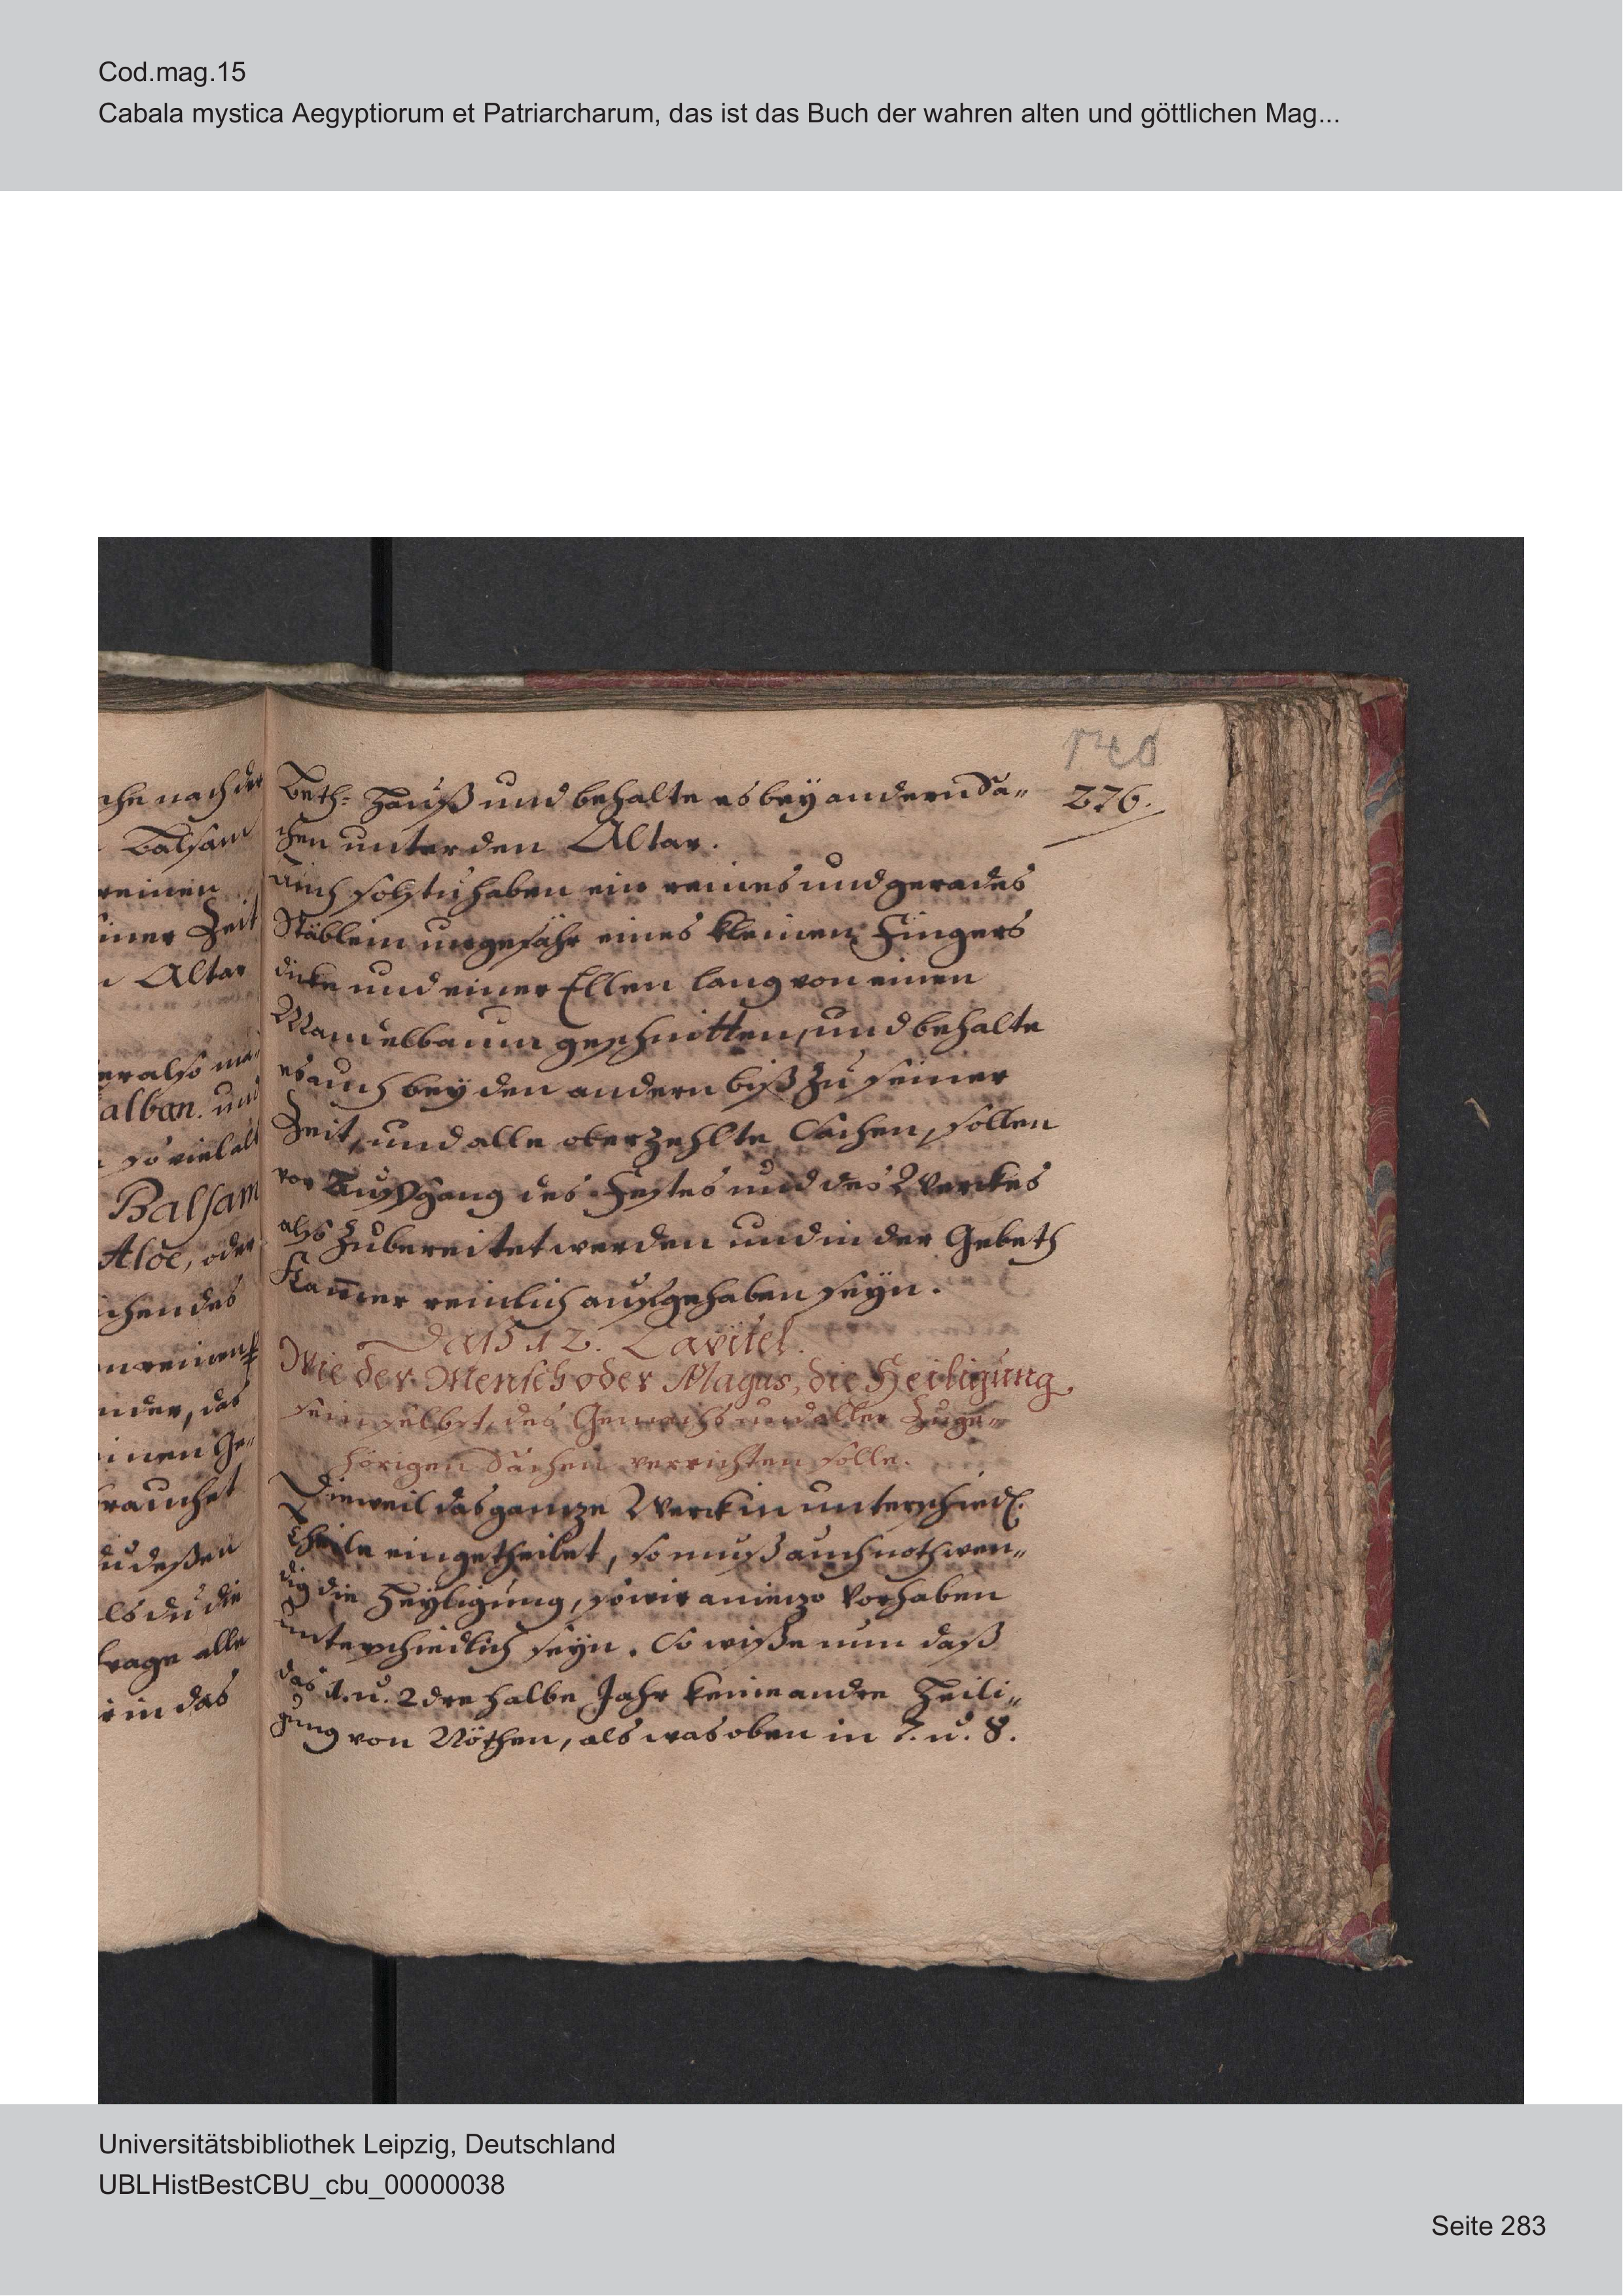 Cod.mag.15
Cabala mystica Aegyptiorum et Patriarcharum, das ist das Buch der wahren alten und göttlichen Mag...
che nach der
Balsam
reinen
einer Zeit
n Altar
er also ma-
alban. und
so viel als
Balsam
Aloe, oder
ichen des
n reinen
nder, das
inen Ge-
rauchet
du deßen
ls du die
trage alle
in das
276.
Beth- Hauß und behalte es bey andern Sa-
chen unter den Altar.
Auch solstu haben ein reines und gerades
Stäblein ungefähr eines kleinen Fingers
dicke und einer Ellen lang von einen
Mandelbaum geschnitten, und behalte
es auch bey den andern biß zu seiner
Zeit, und alle oberzehlte Sachen, sollen
vor Außgang des Festes und des Werckes
also zubereitet werden und in der Gebeth
Kam̄er reinlich aufgehaben seyn.
Das 12. Capitel.
Wie der Mensch oder Magus, die Heiligung
sein selbst, des Gemachs und aller Zuge-
hörigen Sachen verrichten solle.
Dieweil das gantze Werck in unterschiedl.
Theile eingetheilet, so muß auch nothwen-
dig die Heyligung, so wir anietzo vorhaben
unterschiedlich seyn. So wiße nun daß
das 1. u. 2dre halbe Jahr keine andre Heili-
gung von Nöthen, als was oben in 7. u. 8.
Universitätsbibliothek Leipzig, Deutschland
UBLHistBestCBU_cbu_00000038
Seite 283